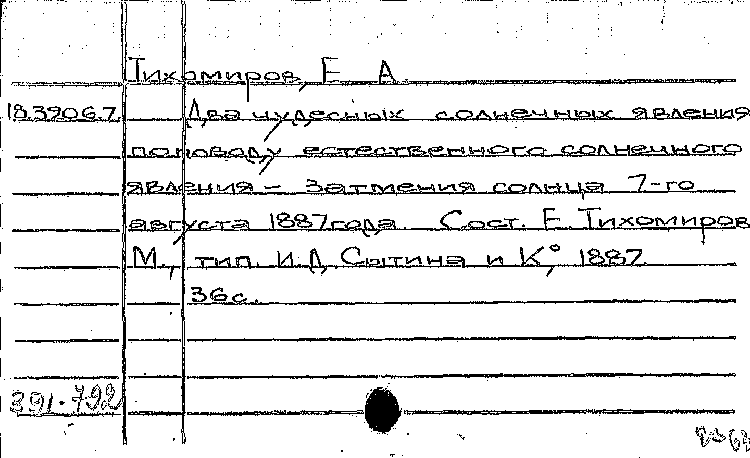 Тихомиров, Е. А.
18.390.6.7 Два чудесных солнечных явления
поповоду естественного солнечного
явления – затмения солнца 7-го
августа 1887 года. Сост. Е. Тихомиров
М., тип. И.Д. Сытина и К°, 1887.
36 с.
391.792